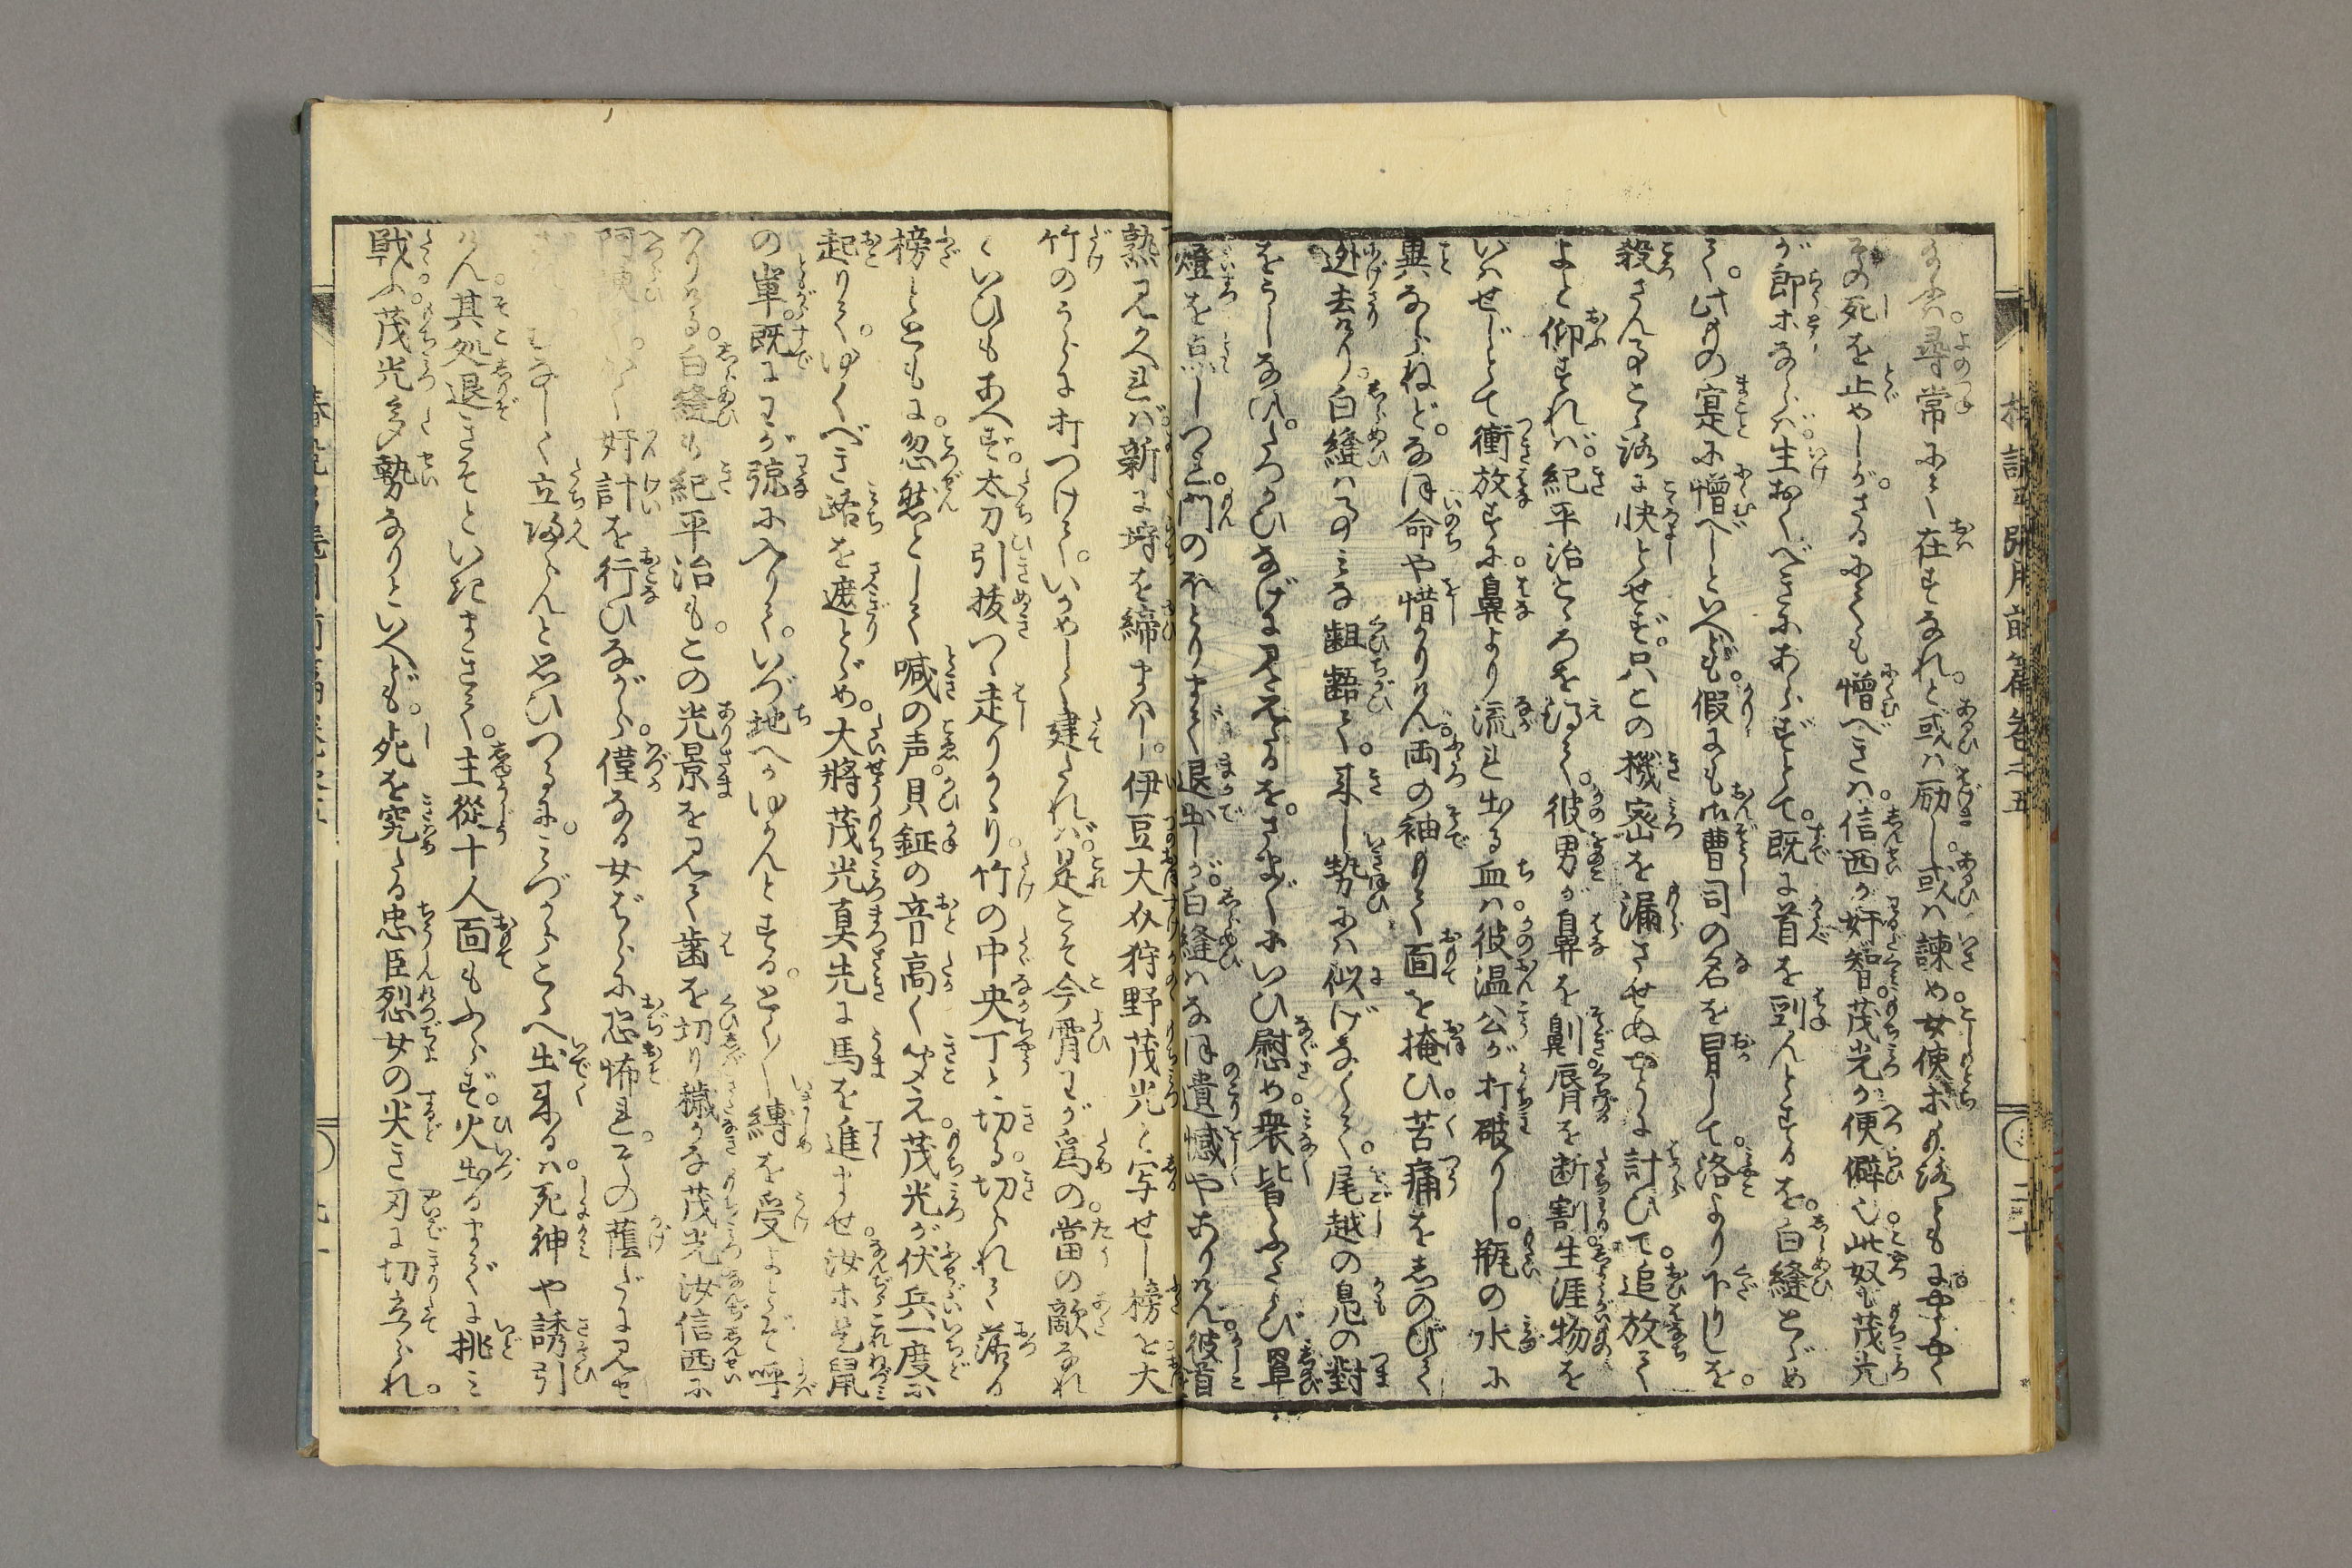 尋常にて在すなれと或は励し或は諫め女使ホのみとも
その死を止めしがさるにても憎べきは信西が奸智茂光が便僻也此奴も茂光
が郎ホならば生おくべきにあらずとて既に首を刎んとするを白縫とゞめ
て此もの寔に憎べしといへども假にも御曹司の名を冒して洛より下りしを
殺さんはこゝろに快とせず只この機密を漏させぬやうに計ひて追放て
よと仰すれば紀平治こゝろを得て彼男が鼻を劓脣を断割生涯物を
いはせじとて衝放すに鼻より流れ出る血は彼温公が打破りし瓶の水に
異ならねどなほ命や惜かりけん両の袖もて面を掩ひ苦痛をしのびて
迯去けり白縫はものみな齟齬て来し勢には似げなくて尾越の鳧の對
をうしなひたつかひなげに見えたるをさま〴〵にいひ慰め衆皆ふたゝび罩
燈を点しつれ門のほとりまで退出しが白縫はなほ遺憾やありけん彼首
熟見かへれば新に埒を締まはし伊豆大介狩野茂光と写せし榜を大
竹のうらに打つけていかめしく建たれば是こそ今霄わが為の當の敵なれ
といひもあへず太刀引抜つゝ走りかゝり竹の中央丁と切る切られて落る
榜とともに忽然として喊の声貝鉦の音高く聞え茂光が伏兵一度に
起りてゆくべき路を遮とゞめ大将茂光真先に馬を進ませ汝ホ是鼠
の軍既にわが弶に入りていづ地へかゆかんとするとく〳〵縛を受よとぞ呼
はりける白縫も紀平治もこの光景を見て歯を切り穢き茂光汝信西に
阿諛てかく奸計を行ひながら僅なる女ばらに恐怖れその蔭だに見せ
むなしく立帰らんと思ひつるにみづからこゝへ出来るは死神や誘引
けん其処退きそといひもまさず主従十人面もふらず火出るまでに挑み
戦ふ茂光多勢なりといへども死を究たる忠臣烈女の尖き刃に切立られ